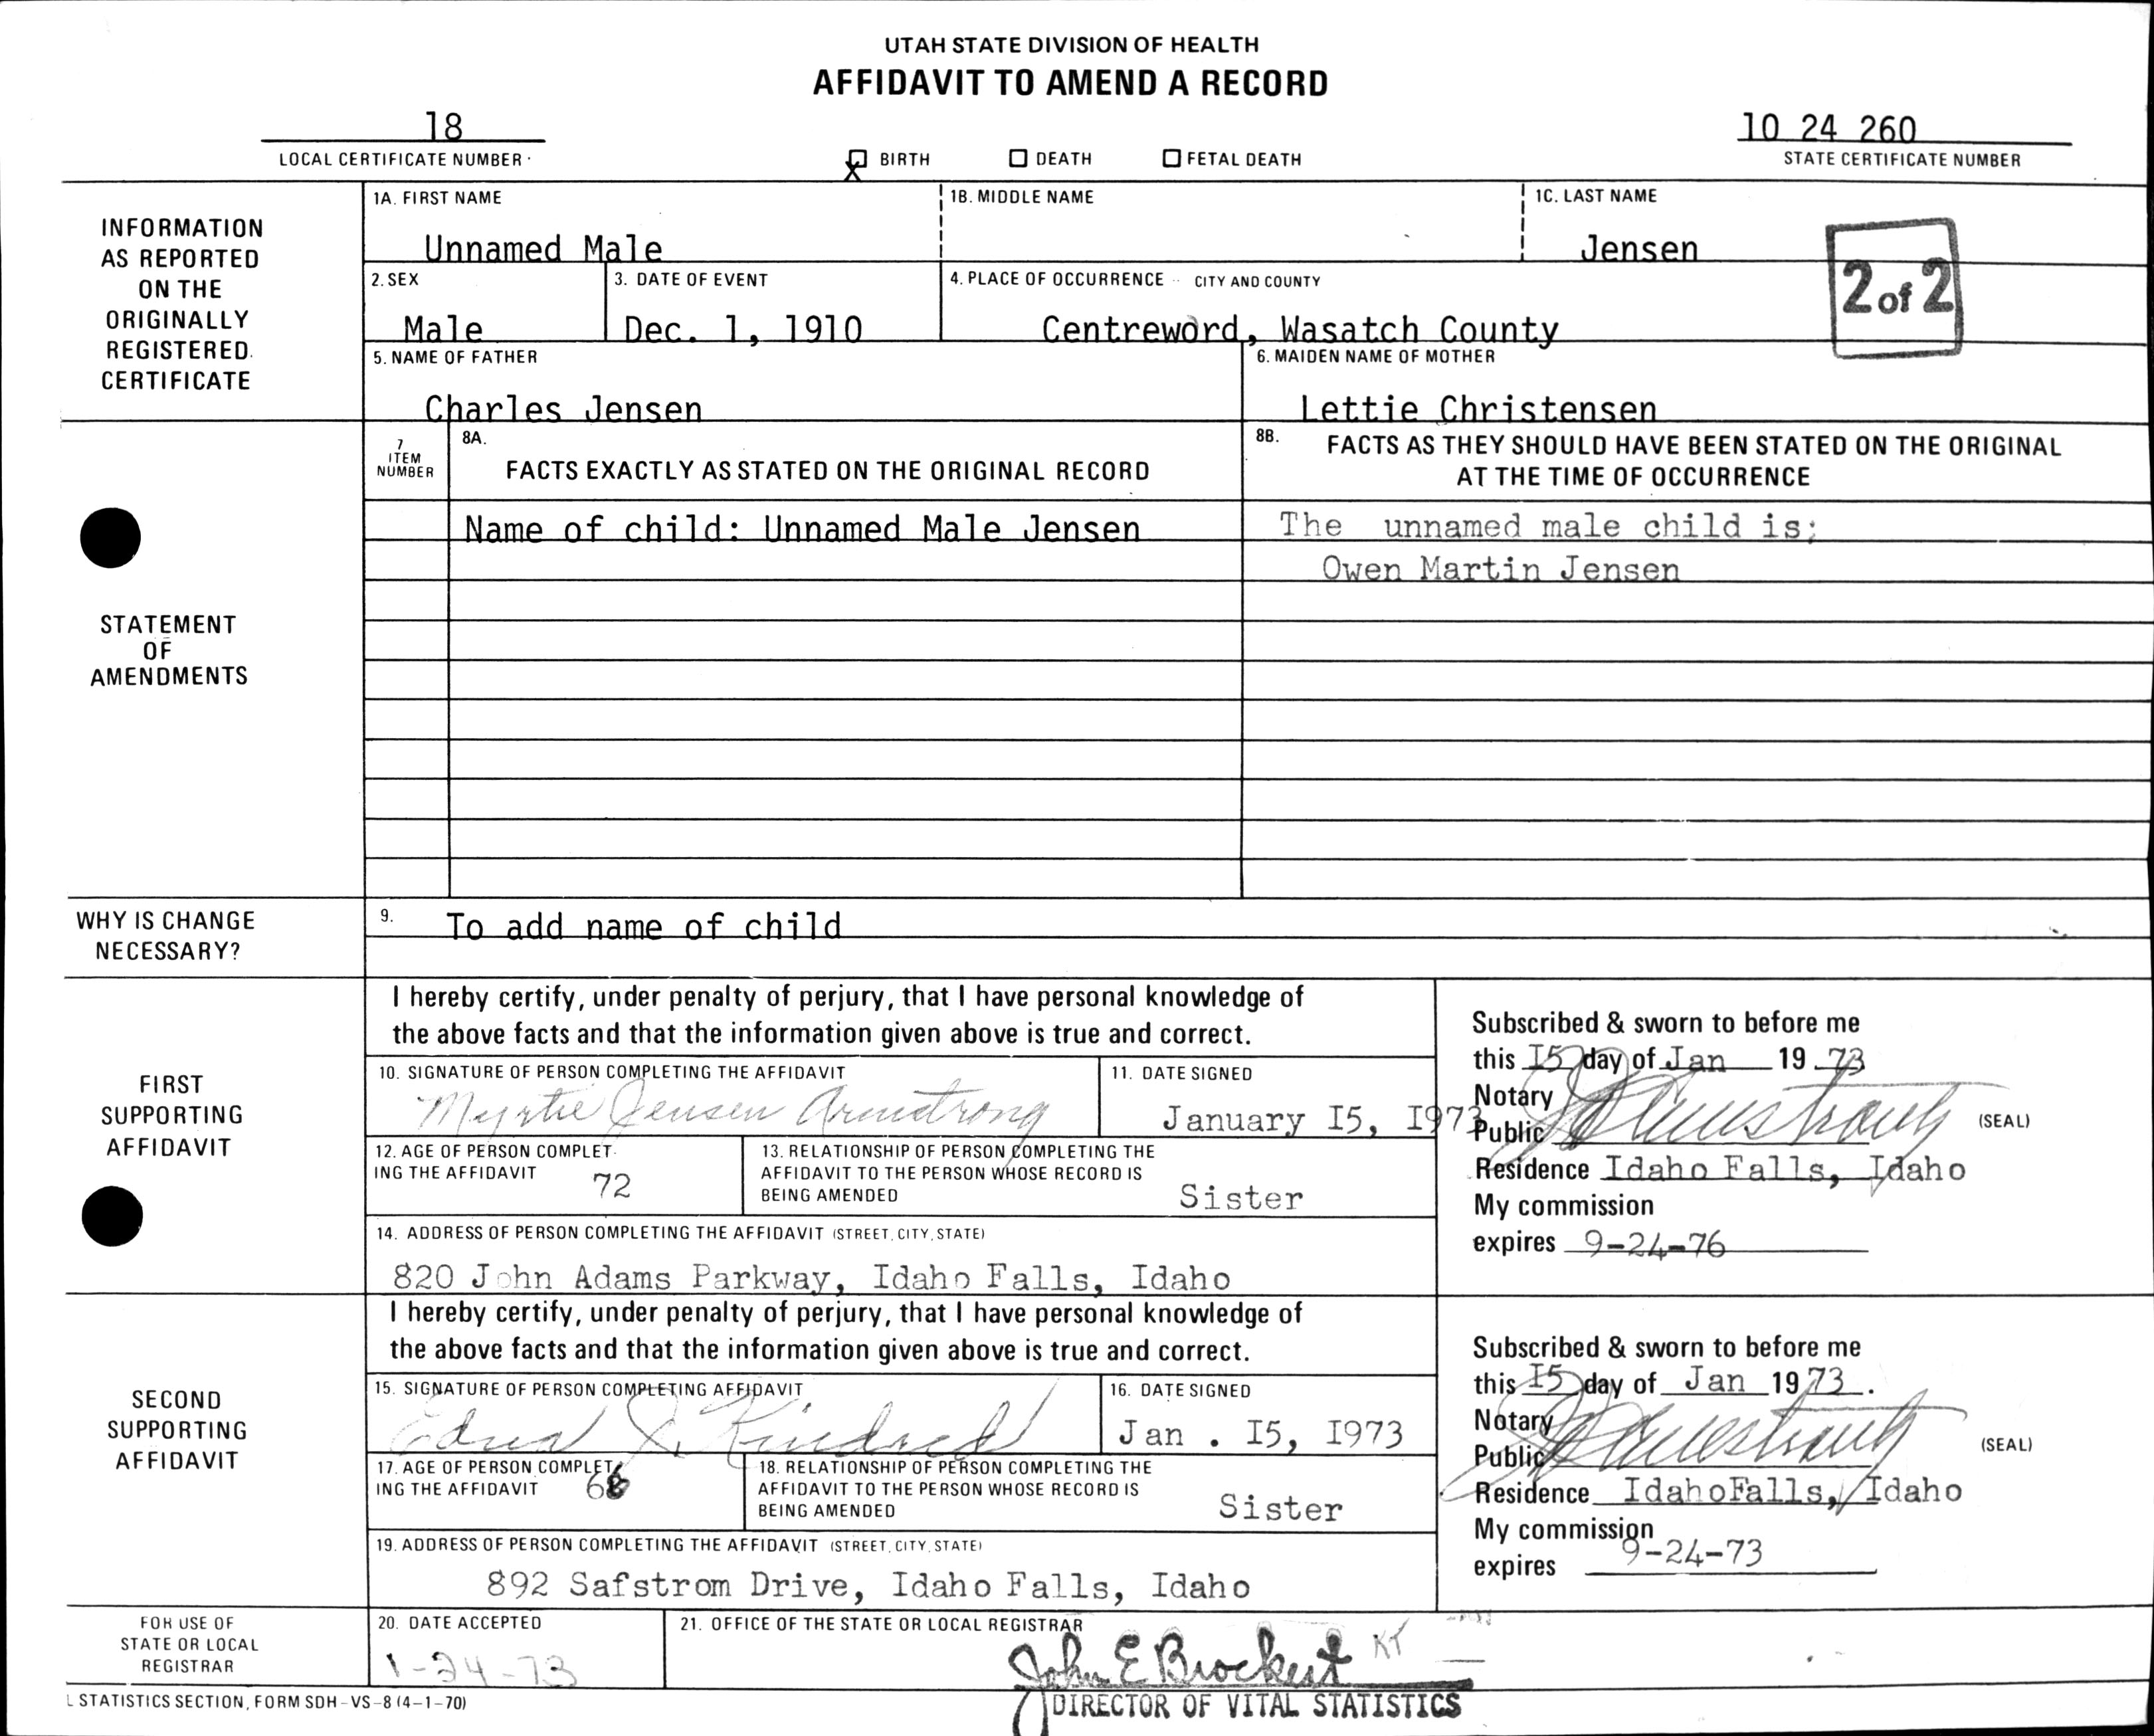 UTAH STATE DIVISION OF HEALTH
AFFIDAVIT TO AMEND A RECORD
18
10 24 260
LOCAL CERTIFICATE NUMBER
X BIRTH DEATH FETAL DEATH
STATE CERTIFICATE NUMBER
INFORMATION
AS REPORTED
ON THE
ORIGINALLY
REGISTERED
CERTIFICATE
1A. FIRST NAME
Unnamed Male
1B. MIDDLE NAME
1C. LAST NAME
Jensen
2 of 2
2. SEX
Male
3. DATE OF EVENT
Dec. 1, 1910
4. PLACE OF OCCURRENCE -- CITY AND COUNTY
Centreword, Wasatch County
5. NAME OF FATHER
Charles Jensen
6. MAIDEN NAME OF MOTHER
Lettie Christensen
STATEMENT
OF
AMENDMENTS
7
ITEM
NUMBER
8A.
FACTS EXACTLY AS STATED ON THE ORIGINAL RECORD
8B.
FACTS AS THEY SHOULD HAVE BEEN STATED ON THE ORIGINAL
AT THE TIME OF OCCURRENCE
Name of child: Unnamed Male Jensen
The unnamed male child is;
Owen Martin Jensen
WHY IS CHANGE
NECESSARY?
9.
To add name of child
FIRST
SUPPORTING
AFFIDAVIT
I hereby certify, under penalty of perjury, that I have personal knowledge of
the above facts and that the information given above is true and correct.
10. SIGNATURE OF PERSON COMPLETING THE AFFIDAVIT
Myrtie Jensen Armstrong
11. DATE SIGNED
January I5, I973
12. AGE OF PERSON COMPLET-
ING THE AFFIDAVIT
72
13. RELATIONSHIP OF PERSON COMPLETING THE
AFFIDAVIT TO THE PERSON WHOSE RECORD IS
BEING AMENDED
Sister
14. ADDRESS OF PERSON COMPLETING THE AFFIDAVIT (STREET, CITY, STATE)
820 John Adams Parkway, Idaho Falls, Idaho
Subscribed & sworn to before me
this I5 day of Jan 19 73
Notary
Public
(SEAL)
Residence Idaho Falls, Idaho
My commission
expires 9-24-76
SECOND
SUPPORTING
AFFIDAVIT
I hereby certify, under penalty of perjury, that I have personal knowledge of
the above facts and that the information given above is true and correct.
15. SIGNATURE OF PERSON COMPLETING AFFIDAVIT
Edna J. Kindred
16. DATE SIGNED
Jan . I5, I973
17. AGE OF PERSON COMPLET-
ING THE AFFIDAVIT
18. RELATIONSHIP OF PERSON COMPLETING THE
AFFIDAVIT TO THE PERSON WHOSE RECORD IS
BEING AMENDED
Sister
19. ADDRESS OF PERSON COMPLETING THE AFFIDAVIT (STREET, CITY, STATE)
892 Safstrom Drive, Idaho Falls, Idaho
Subscribed & sworn to before me
this I5 day of Jan 19 73.
Notary
Public
(SEAL)
Residence IdahoFalls, Idaho
My commission
expires 9-24-73
FOR USE OF
STATE OR LOCAL
REGISTRAR
20. DATE ACCEPTED
1-24-73
21. OFFICE OF THE STATE OR LOCAL REGISTRAR
John E Brockert KT
DIRECTOR OF VITAL STATISTICS
L STATISTICS SECTION, FORM SDH-VS-8 (4-1-70)